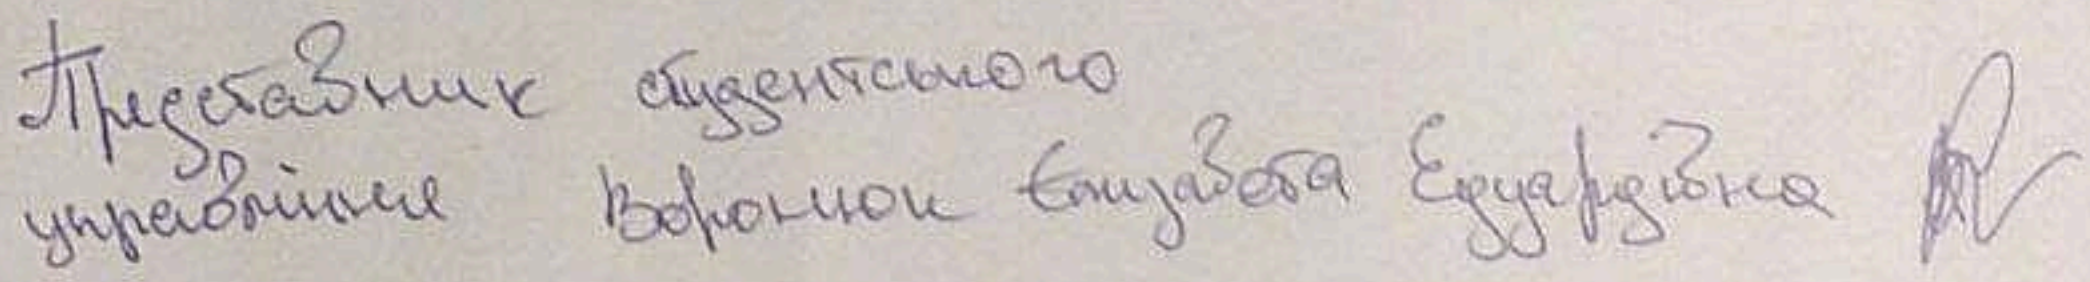 Представник студентського
управління Воронюк Єлизавета Едуардівна